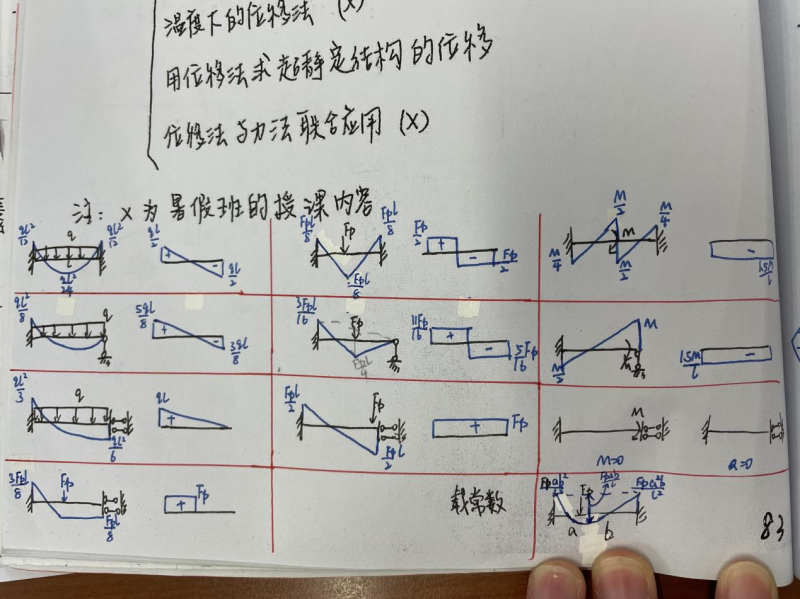 温度下的位移法 (X)
用位移法求超静定结构的位移
位移法与力法联合应用 (X)
注: X为暑假班的授课内容
ql²/12 q ql²/12 ql²/24 ql/2 ql/2
FpL/8 Fp FpL/8 FpL/8 Fp/2 Fp/2
M/4 M/2 M M/2 M/4 1.5M/l
ql²/8 q 5ql/8 3ql/8
3FpL/16 Fp FpL/4 11Fp/16 5Fp/16
M/2 M M 1.5M/l
ql²/3 q ql²/6 ql
FpL/2 Fp FpL/2 Fp
M M=0 Q=0
3FpL/8 Fp FpL/8 Fp
载常数
Fpab²/l² Fp Fpab/l Fpa²b/l² a b
83